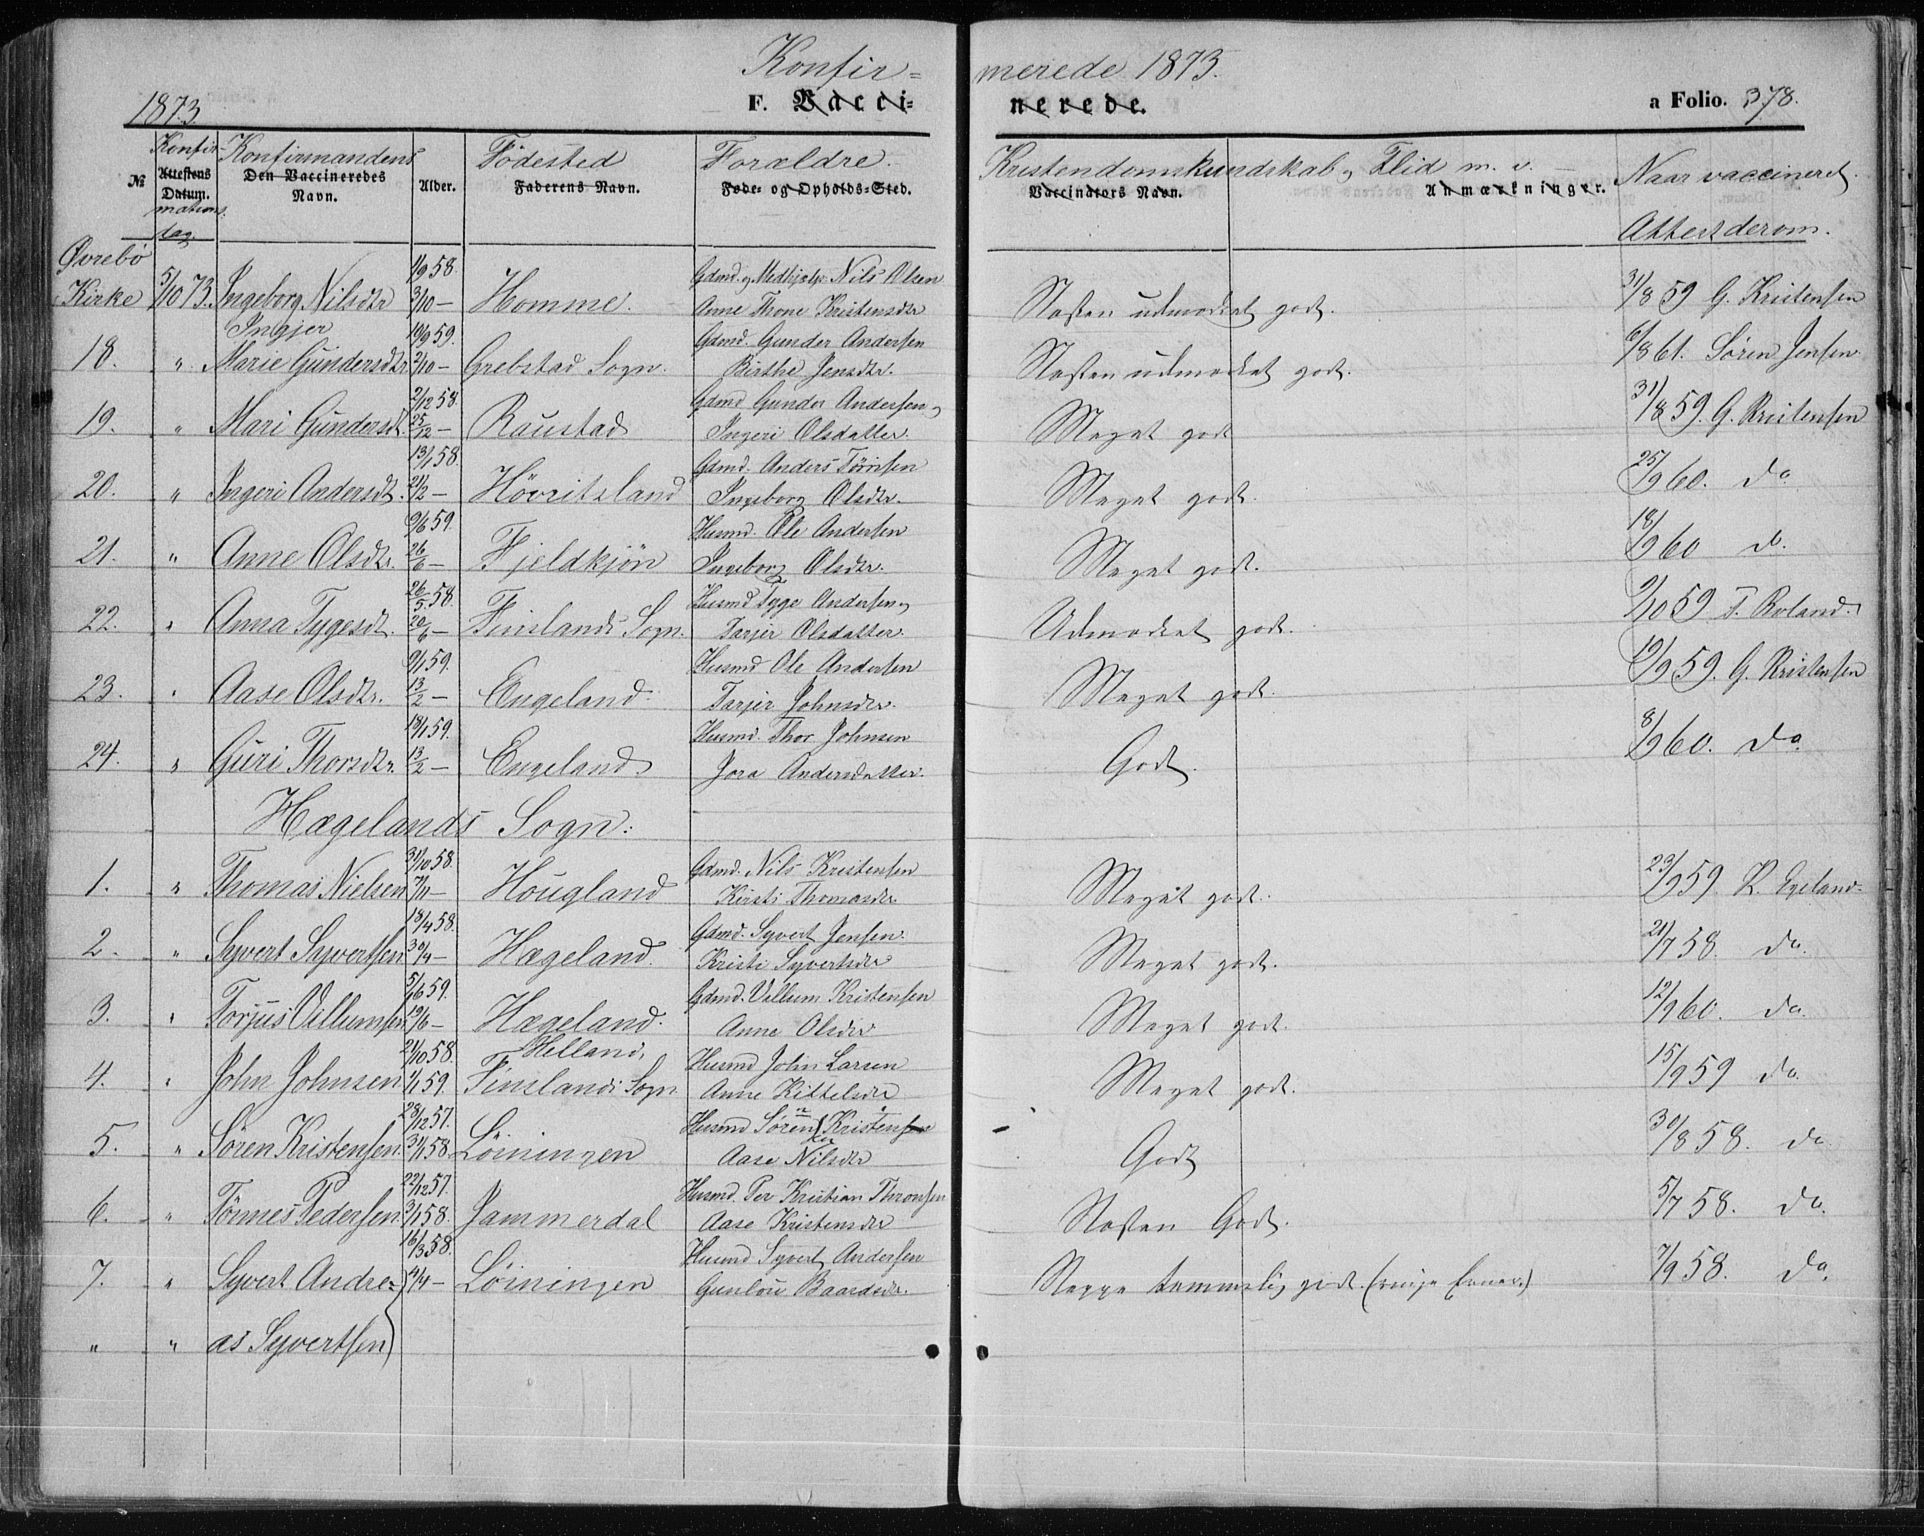 Konfir= merede 1873.
1873. F. Vacci= nerede. a Folio. 378.
№ Konfir- Attestens Datum. mations dag. Konfirmandens Den Vaccineredes Navn. Alder. Fødested Faderens Navn. Forældre. Føde- og Opholds-Sted. Kristendomskundskab, Flid m. v. Vaccinators Navn. Anmærkninger. Naar vaccineret. Attest derom.
Øvrebö 1/9 58. Gdmd. og Medhjelpr. Nils Olsen
Kirke 5/10 73. Ingeborg Nilsdtr 3/10 — Homme. Anne Thone Kristensdtr Næsten udmærket godt. 31/8 59 G. Kristensen
Ingjer 19/9 59. Gdmd. Gunder Andersen
18. " Marie Gundersdtr. 2/10 — Grebstad Sogn. Birthe Jensdtr. Næsten udmærket godt. 6/8 61. Sören Jensen
2/12 58. Gdmd Gunder Andersen,
19. " Mari Gundersdt. 25/12 — Raustad Ingeri Olsdatter. Meget godt 31/8 59. G. Kristensen
13/1 58. Gdmd. Anders Törrisen
20. " Ingeri Andersdt. 21/2 — Hövritsland Ingeborg Olsdtr. Meget godt. 25/9 60. do
9/6 59. Husmd. Ole Andersen
21. " Anne Olsdtr. 26/6 — Fjeldkjön Ingeborg Olsdtr. Meget godt. 18/9 60 do.
26/5 58. Husmd Tyge Andersen,
22. " Anna Tygesdt. 20/6 — Finslands Sogn. Tarjer Olsdatter. Udmærket godt. 9/10 59 T. Roland.
9/1 59. Husmd Ole Andersen
23. " Aase Olsdtr. 13/2 — Engeland. Tarjer Johnsdtr. Meget godt. 19/9 59. G. Kristensen
18/1 59. Husmd. Thor Johnsen
24. " Guri Thorsdtr. 13/2 — Engeland Jora Andersdatter. Godt. 8/9 60. do
Hægelands Sogn:
31/10 58. Gdmd. Nils Kristensen
1. " Thomas Nielsen 7/11 — Hougland Kirsti Thomasdtr Meget godt. 23/9 59. K. Egeland
18/4 58. Gdmd. Syvert Jensen.
2. " Syvert Syvertsen 30/4 — Hægeland. Kristi Syvertsdtr Meget godt. 21/7 58. do.
5/6 59. Gdmd. Villum Kristensen
3. " Torjus Villumsen 19/6 — Hægeland. Anne Olsdtr Meget godt. 12/9 60. do.
21/10 58. Helland, Husmd John Larsen
4. " John Johnsen 1/1 59. Finslands Sogn Anne Kittelsdtr Meget godt. 15/9 59 do.
28/12 57. Husmd Sören Kristensen
5. " Søren Kristensen 31/1 58. Löiningen Aase Nilsdtr Godt 30/8 58. do
22/12 57. Husmd. Per Kristian Thronsen
6. " Tönnes Pedersen 3/1 58. Jammerdal Aase Kristensdtr Næsten Godt. 5/7 58. do.
16/3 58. Husmd Syvert Andersen
7. " Syvert Andre- 4/4 — Löiningen Gunlou Baardsdtr. Neppe temmelig godt. 7/9 58. do.
" " as Syvertsen